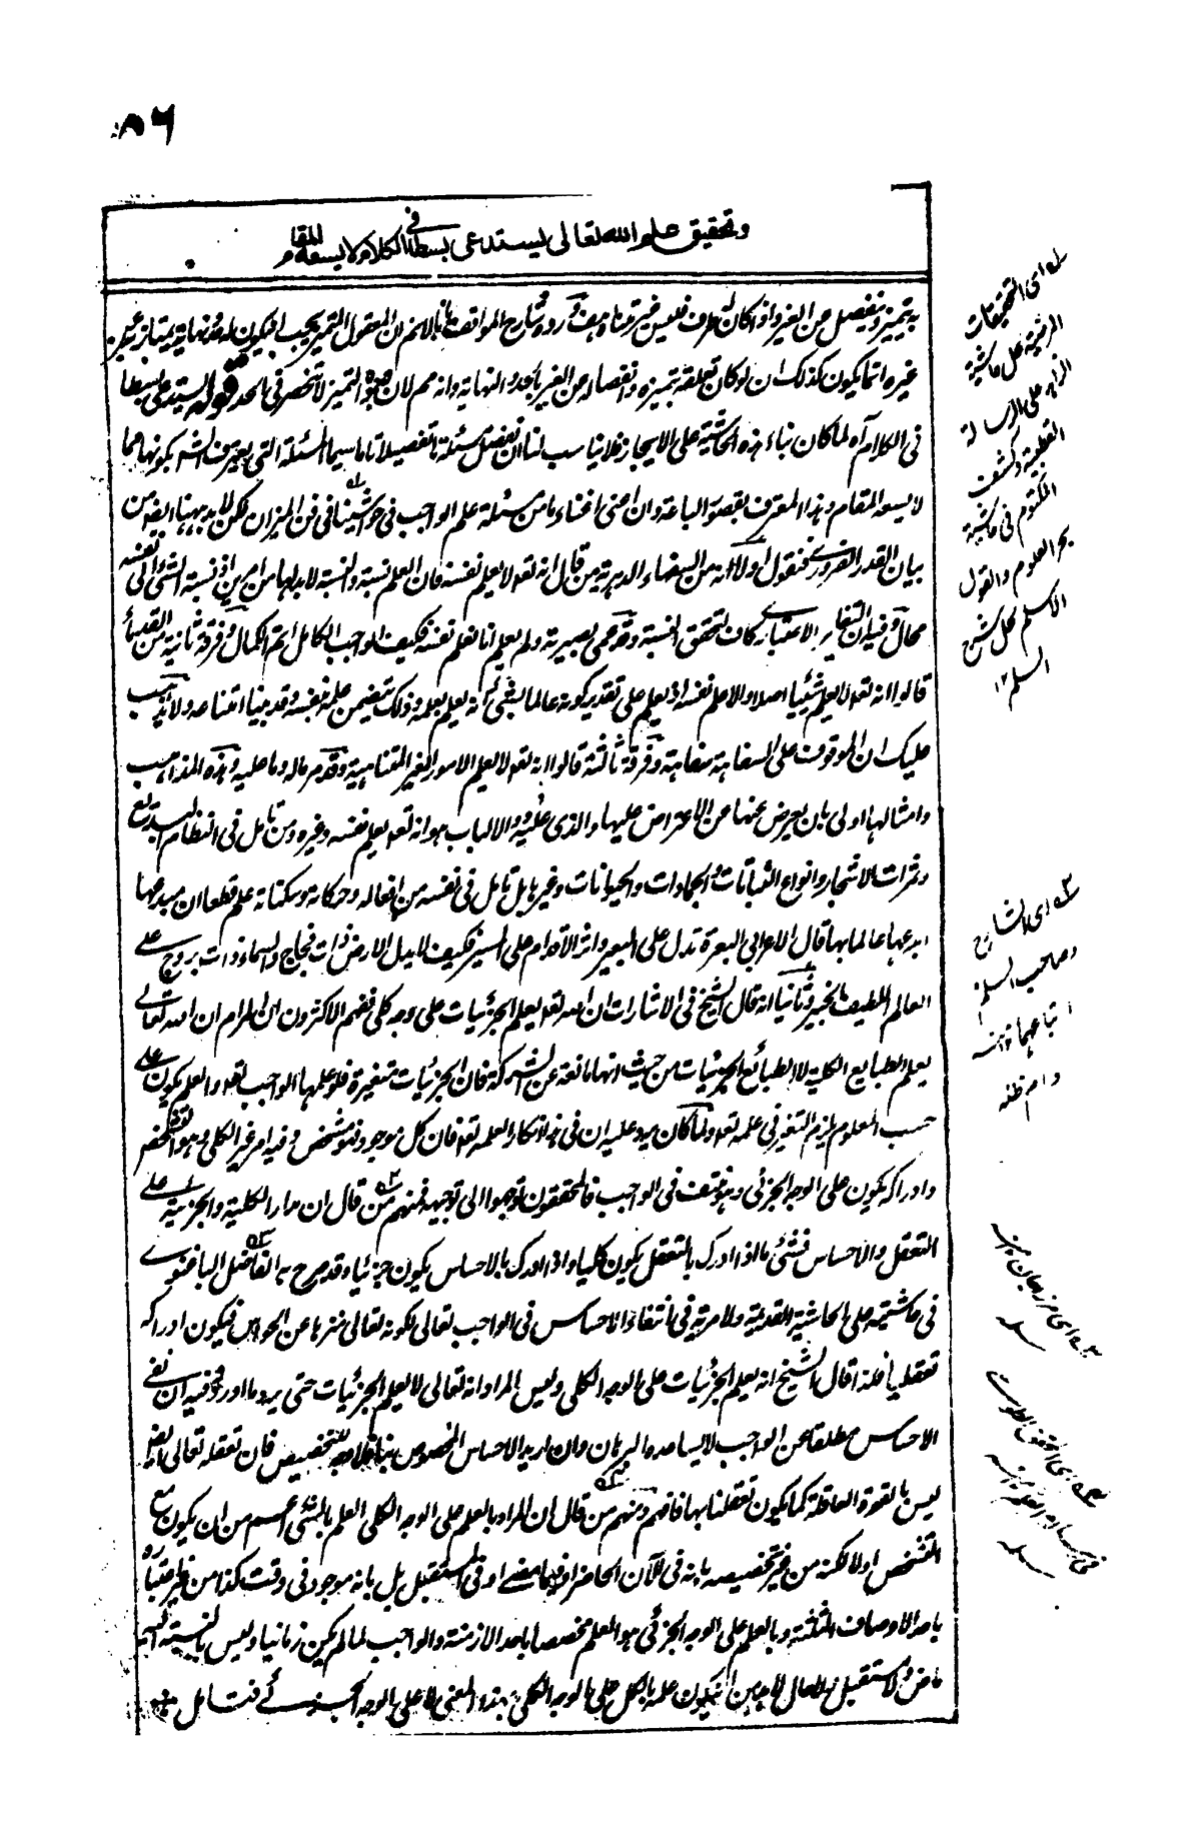 ٥٦
وتحقيق علم الله تعالى يستدعى بسطا فى الكلام لا يسعه المقام
به يتميز وينفصل عن الغير واذا كان له طرف فليس غير متناه هف ورده شارح المواقف بانا لا نسلم ان المعقول المتميز يجب ان يكون له حد ونهاية يمتاز به عن
غيره انما يكون كذلك ان لو كان تعلقه بتميزه وانفصاله عن الغير بالحد والنهاية وانه مم لان وجوه التميز لا تنحصر فى الحد قوله يستدعى بسطا
فى الكلام آه لما كان بناء هذه الحاشية على الايجاز فلا يناسب لنا ان نفصل مسئلة تفصيلا تاما سيما المسئلة التى يعترف الشم بكونها مما
لا يسعه المقام وهذا المعترف بقصور الباعة وان اغنى اغناء ما من مسئلة علم الواجب فى حواشينا فى فن الميزان لكن لا بد ههنا ايضا من
بيان القدر الضرورى فنقول اولا انه من السفهاء الدهرية من قال انه تعم لا يعلم نفسه فان العلم نسبة والنسبة لا بد لها من امرين اذ نسبة الشئ الى نفسه
محال وفيه ان التغاير الاعتبارى كاف لتحقق النسبة وقد عمى بصيرته ولم يعلم انا نعلم نفسنا فكيف الواجب الكامل اتم الكمال وفرقة ثانية من القدماء
قالوا انه تعم لا يعلم شيئا اصلا والا علم نفسه اذ يعلم على تقدير كونه عالما بشئ انه يعلم بعلمه وذلك يتضمن علمه بنفسه وقد بينا امتناعه ولا يذهب
عليك ان الموقوف على السفاهة سفاهة وفرقة ثالثة قالوا انه تعم لا يعلم الامور الغير المتناهية وقد مر ماله وما عليه وهذه المذاهب
وامثالها اولى بان يعرض عنها عن الاعتراض عليها والذى عليه اولو الالباب هو انه تعم يعلم نفسه وغيره ومن تامل فى انتظام البديع
وثمرات الاشجار وانواع النباتات والجمادات والحيوانات وغيرها بل تامل فى نفسه من افعاله وحركاته وسكناته علم قطعا ان مبدعها
ابدعها عالما بها قال الاعرابى البعرة تدل على البعير واثر الاقدام على المسير فكيف لا يدل الارض ذات فجاج والسماء ذات بروج على
العالم اللطيف الخبير وثانيا انه قال الشيخ فى الاشارات ان الله تعم يعلم الجزئيات على وجه كلى ففهم الاكثرون ان المرام ان الله تعالى
يعلم الطبائع الكلية لا الطبائع الجزئيات من حيث انها مانعة عن الشركة فان الجزئيات متغيرة فلو علمها الواجب تعم والعلم يكون على
حسب المعلوم يلزم التغير فى علمه تعم ولما كان يرد عليه ان فى هذا انكار العلمه تعم فان كل موجود متشخص وفيه امر غير الكلى وهو التشخص
وادراكه يكون على الوجه الجزئى وهو منتف فى الواجب فالمحققون توجهوا الى توجيهه فمنهم من قال ان مدار الكلية والجزئية على
التعقل والاحساس فشئ ما اذا ادرك بالتعقل يكون كليا واذا ادرك بالاحساس يكون جزئيا وقد صرح به الفاضل الباغنوى
فى حاشيته على الحاشية القديمة ولا مرية فى انتفاء الاحساس فى الواجب تعالى لكونه تعالى منزها عن الحواس فيكون ادراكه
تعقليا فلذا قال الشيخ انه يعلم الجزئيات على الوجه الكلى وليس المراد انه تعالى لا يعلم الجزئيات حتى يرد ما اورد وفيه ان نفى
الاحساس مطلقا عن الواجب لا يساعده البرهان وان اريد الاحساس المخصوص بنا فلا وجه للتخصيص فان تعقله تعالى ايضا
ليس بالقوة العاقلة كما يكون تعقلنا بها فافهم ومنهم من قال ان المراد بالعلم على الوجه الكلى العلم بالشئ اعم من ان يكون مع
التشخص اولا لكنه من غير تخصيصه بانه فى الآن الحاضر او فيما مضى او فى المستقبل بل بانه موجود فى وقت كذا من غير اعتباره
باحد الاوصاف الثلثة وبالعلم على الوجه الجزئى هو العلم مخصصا باحد الازمنة والواجب لما لم يكن زمانيا وليس بالنسبة اليه
ماض ولا مستقبل ولا حال لا جرم ان يكون علمه بالكل على الوجه الكلى بهذا المعنى لا على الوجه الجزئى فتامل
له اى التحقيقات
المرضية على حاشية
الزاهد على الرسالة
القطبية وكشف
المكتوم فى حاشية
بحر العلوم والقول
الاسلم لحل شرح
السلم ١٢
٢ه اى الشارح
وصاحب السلم
اتباعهما منه
دام ظله
٣ه اى مرزاجان منه
سلمه
٤ه اى المحقق الطوسى
فى رسالة العلم منه
سلمه